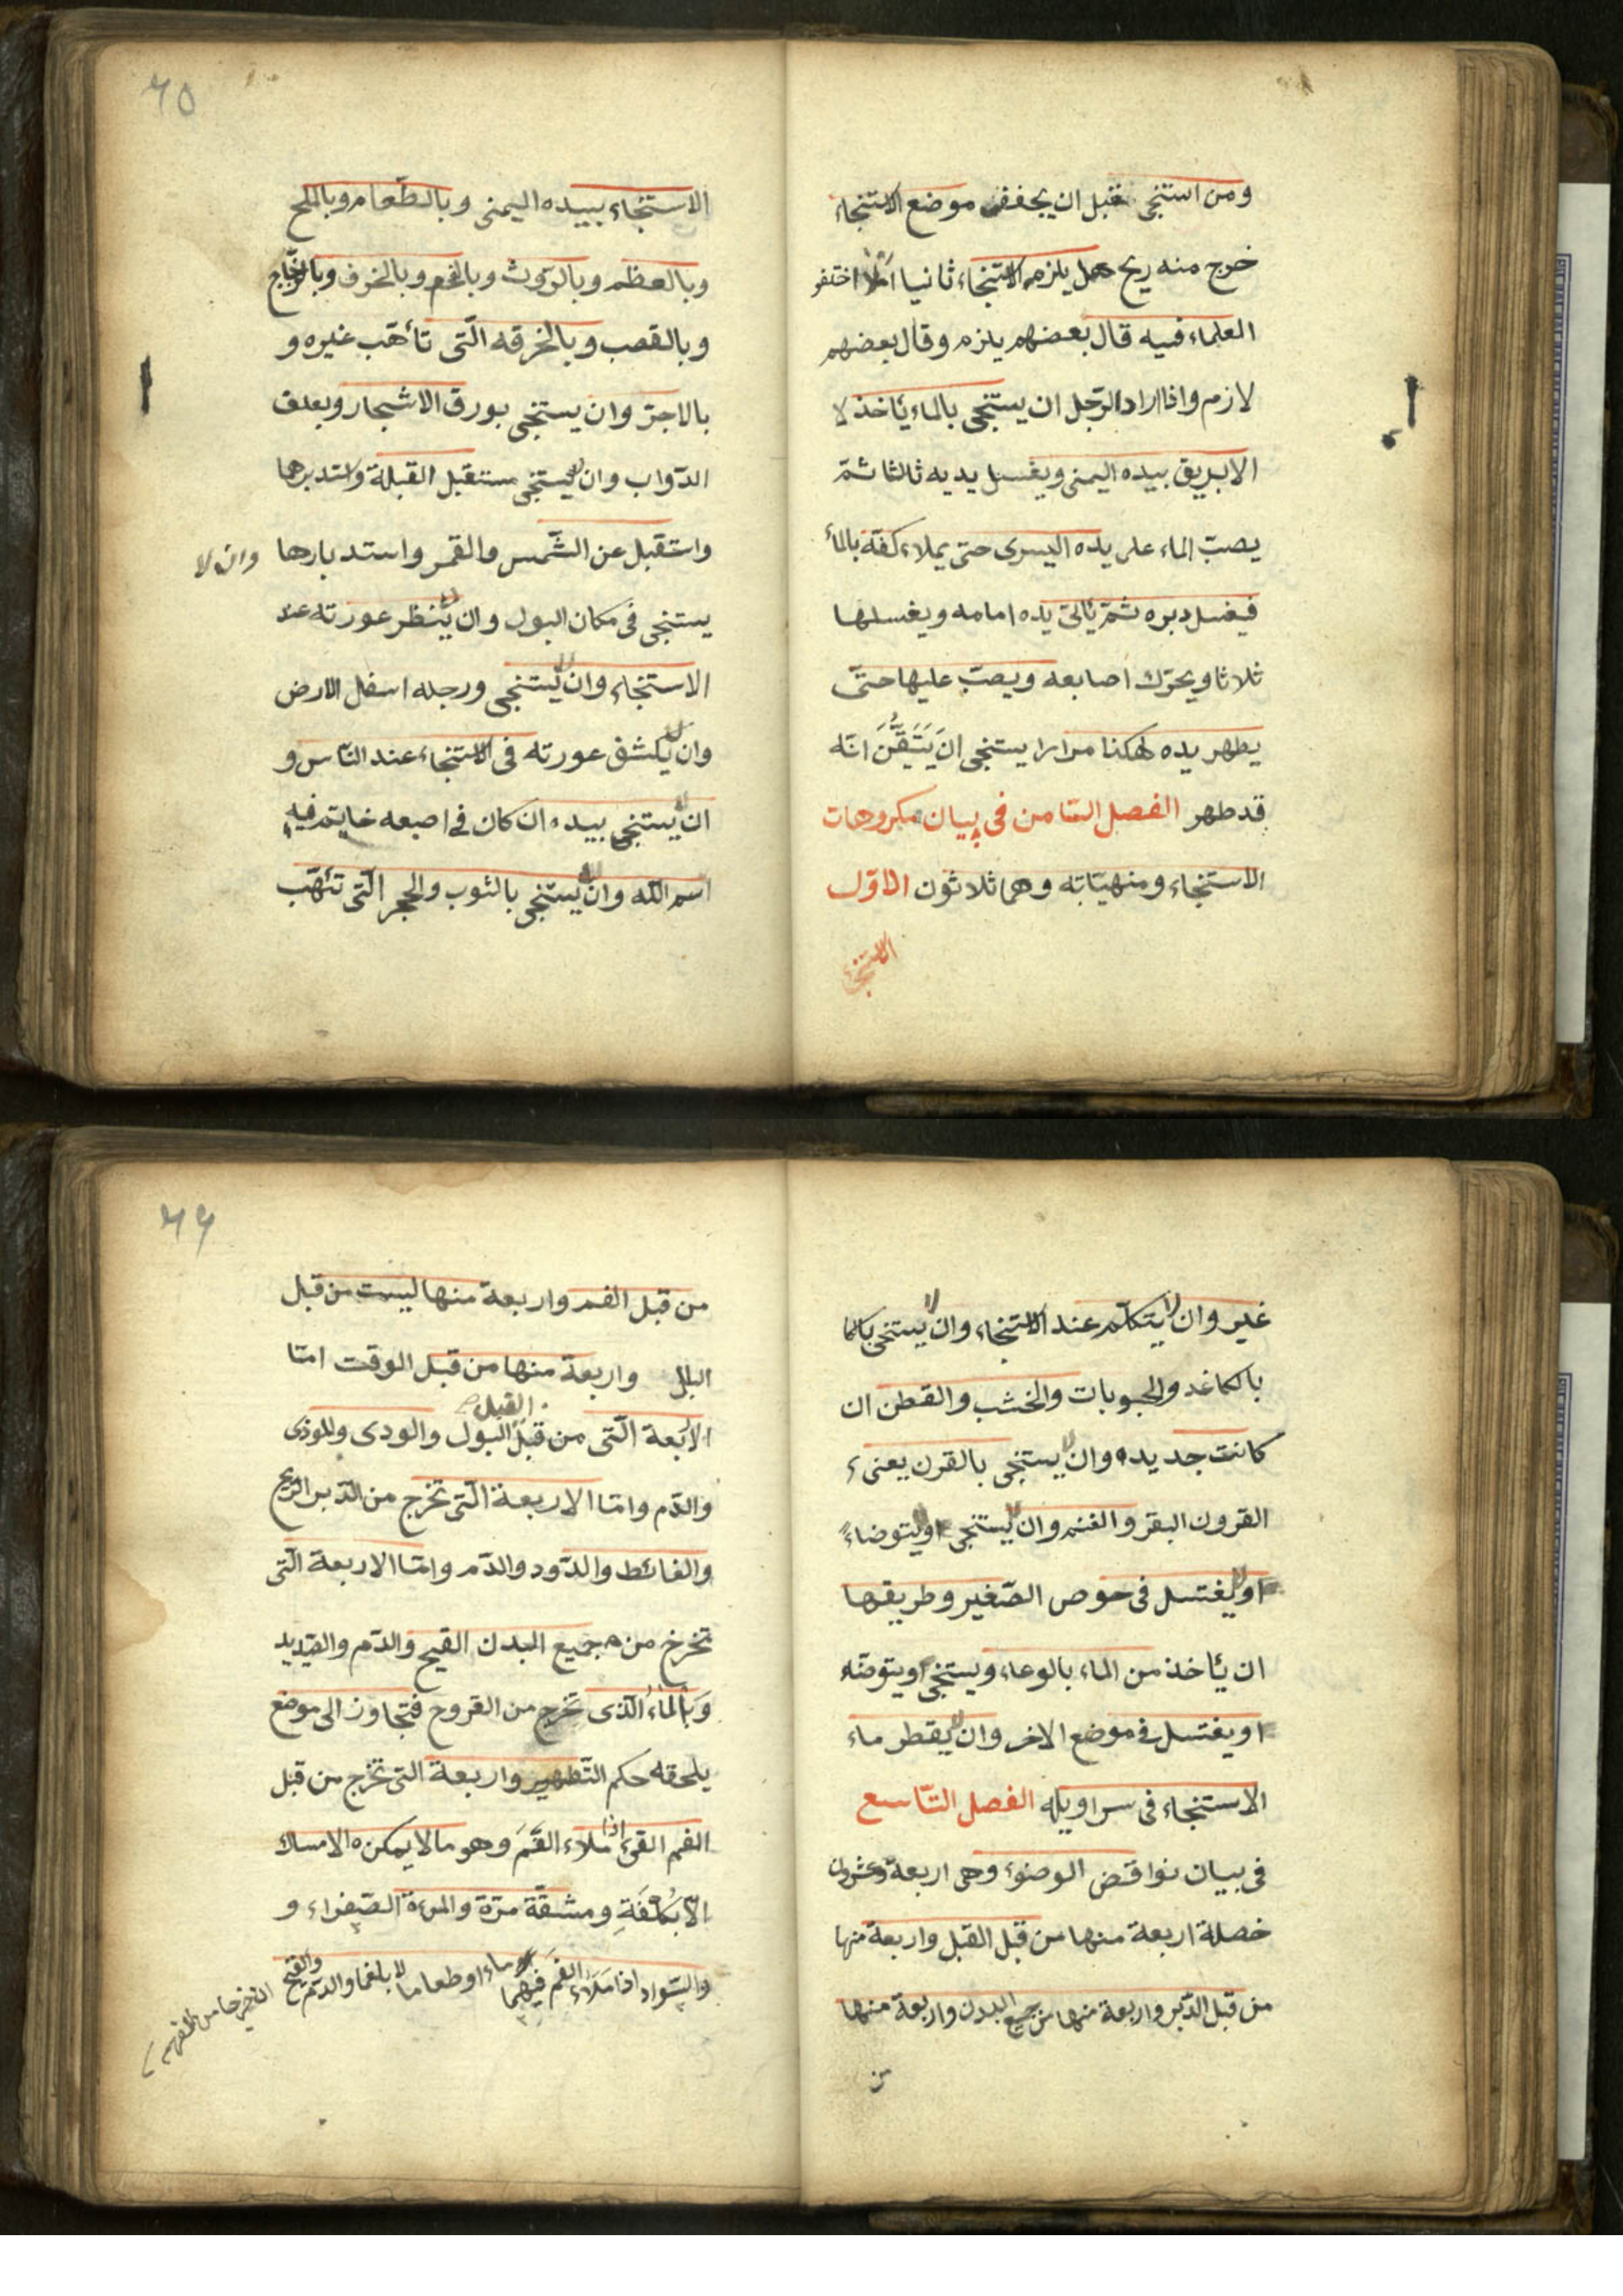 ومن استنجى فقبل ان يجفف موضع الاستنجاء
خرج منه ريح هل يلزم الاستنجاء ثانيا ام لا اختلفو
العلماء فيه قال بعضهم يلزم وقال بعضهم
لازم واذا اراد الرّجل ان يستنجى بالماء يأخذ لا
الابريق بيده اليمنى ويغسل يديه ثالثا ثمّ
يصبّ الماء على يده اليسرى حتى يملاء كفّه بالماء
فيغسل دبره ثمّ يأتى يده امامه ويغسلها
ثلاثا ويحرّك اصابعه ويصبّ عليها حتّى
يطهر يده هكذا مرارا يستنجى ان يَتَيَقَّنَ انّه
قد طهر الفصل الثامن فى بيان مكروهات
الاستنجاء ومنهيّاته وهما ثلاثون الاوّل
الاستنجاء
٦٥
الاستنجاء بيده اليمنى وبالطّعام وبالملح
وبالعظم وبالرّوث وبالفحم وبالخزف وبالزّجاج
وبالقصب وبالخرقه الّتى تأهّب غيره و
بالاجرّ وان يستنجى بورق الاشجار وبعلف
الدّواب وان لا يستنجى مستقبل القبلة واستدبرها
واستقبل عن الشّمس والقمر واستدبارها وان لا
يستنجى فى مكان البول وان لا ينظر عورته عند
الاستنجاء وان لا يستنجى ورجله اسفل الارض
وان لا يكشف عورته فى الاستنجاء عند النّاس و
ان لا يستنجى بيده ان كان فى اصبعه خايتم فيه
اسم اللّه وان لا يستنجى بالثوب والحجر الّتى تئهّب
غير وان لا يتكلّم عند الاستنجاء وان لا يستنجى
بالكاغد والحبوبات والخشب والقطن ان
كانت جديده وان لا يستنجى بالقرن يعنى
القرون البقر والغنم وان لا يستنجى او لا يتوضاء
او لا يغتسل فى حوض الصّغير وطريقها
ان يأخذ من الماء بالوعاء ويستنجى او يتوضّه
او يغتسل فى موضع الاخر وان لا يقطر ماء
الاستنجاء فى سراويله الفصل التّاسع
فى بيان نواقض الوضوء وهى اربعة وعشرون
خصلة اربعة منها من قبل القبل واربعة منها
من قبل الدّبر واربعة منها من جميع البدن واربعة منها
من
٦٦
من قبل الفم واربعة منها ليست من قبل
البلل واربعة منها من قبل الوقت امّا
الاربعة الّتى من قبل القبل البول والودى والموذى
والدّم وامّا الاربعة الّتى تخرج من الدّبر الرّيح
والغائط والدّود والدّم وامّا الاربعة الّتى
تخرخ من جميع البدن القيح والدّم والصّديد
وبالماء الّذى تخرج من القروح فتجاوز الى موضع
يلحقه حكم التّطهير واربعة التى تخرج من قبل
الفم القئ اذا ملاء الفَمَ وهو ما لا يمكنه الامساك
الّا بكلفَةِ ومشقّة مرّة والمرءة الصّفراء و
والسّواد اذا مَلَاء الفمَ فيهما ماء او طعاما لا بلغما والدّم والقيح